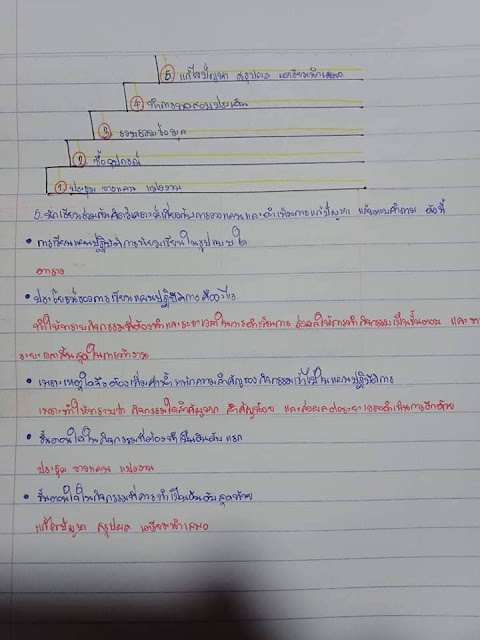 ⑤ แก้ไขปัญหา สรุปผล เตรียมนำเสนอ
④ ทำการทดสอบประเมิน
③ รวบรวมข้อมูล
② ซื้ออุปกรณ์
① ประชุม วางแผน แบ่งงาน
5. นักเรียนร่วมกันคิดวิเคราะห์เกี่ยวกับการวางแผนและดำเนินการแก้ปัญหา แล้วตอบคำถาม ดังนี้
• การเขียนแผนปฏิบัติการนิยมเขียนในรูปแบบใด
ตาราง
• ประโยชน์ของการเขียนแผนปฏิบัติการ คืออะไร
ทำให้ทราบกิจกรรมที่ต้องทำและระยะเวลาในการดำเนินการ ส่งผลให้การทำกิจกรรมเป็นขั้นตอน และ
ระยะเวลาสิ้นสุดในการทำงาน
• เพราะเหตุใดจึงต้องเพิ่มค่าน้ำหนักความสำคัญของกิจกรรมเข้าไปในแผนปฏิบัติการ
เพราะทำให้ทราบว่า กิจกรรมใดสำคัญมาก สำคัญน้อย และส่งผลต่อระยะเวลาดำเนินการอีกด้วย
• ขั้นตอนใดในกิจกรรมที่ต้องทำเป็นอันดับแรก
ประชุม วางแผน แบ่งงาน
• ขั้นตอนใดในกิจกรรมที่ควรทำเป็นอันดับสุดท้าย
แก้ไขปัญหา สรุปผล เตรียมนำเสนอ